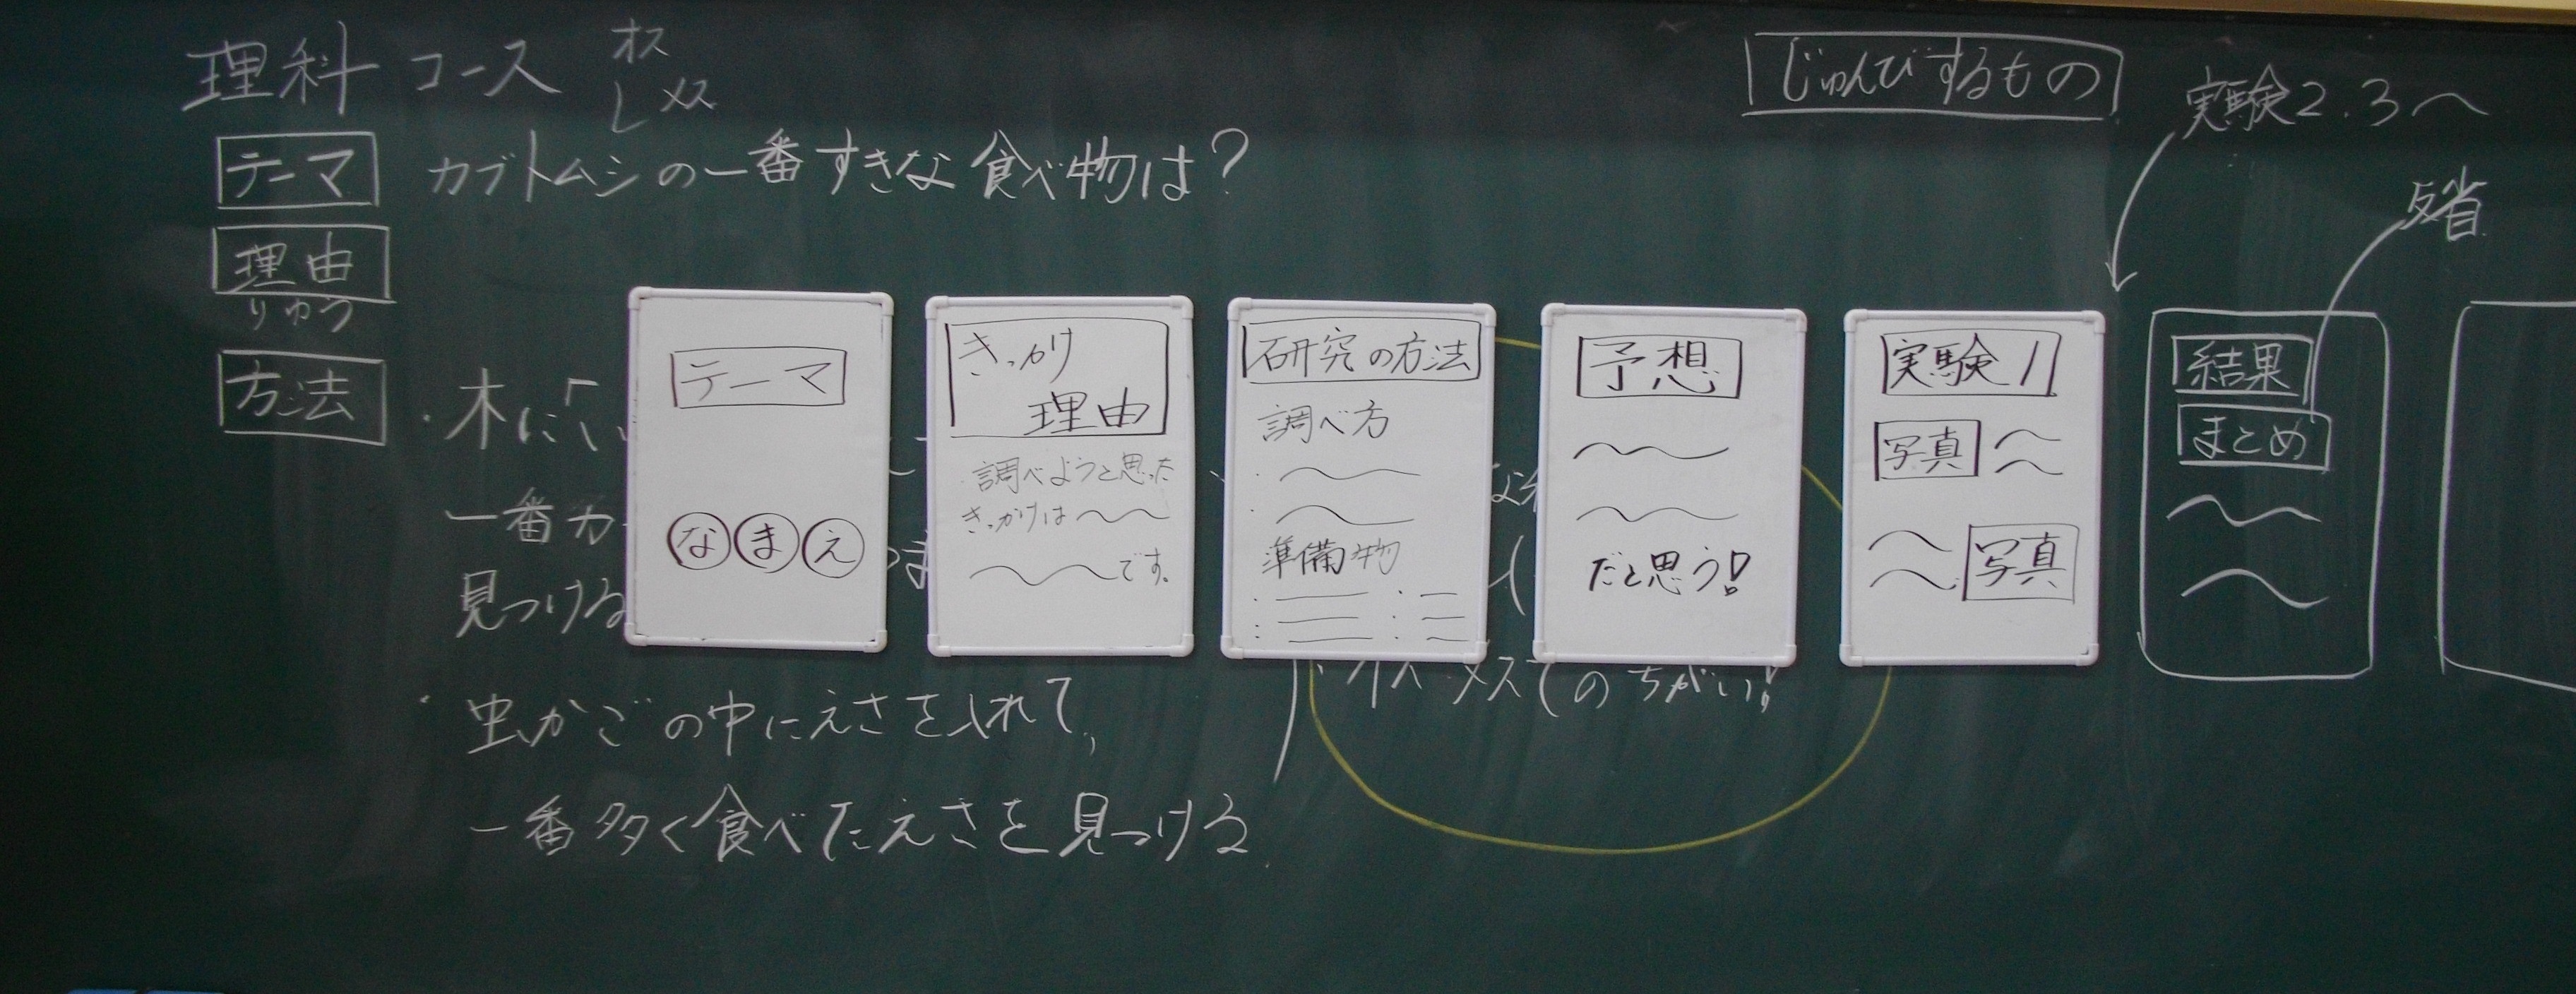 理科 コース
オス
メス
テーマ
カブトムシの一番すきな食べ物は?
理由
りゆう
方法
・木に
一番カ
見つける
・虫かごの中にえさを入れて、
一番多く食べたえさを見つける
じゅんびするもの
実験2.3へ
反省
テーマ
なまえ
きっかけ
理由
調べようと思った
きっかけは
です。
研究の方法
調べ方
準備物
予想
だと思う!
実験1
写真
写真
結果
まとめ
メスでのちがい!